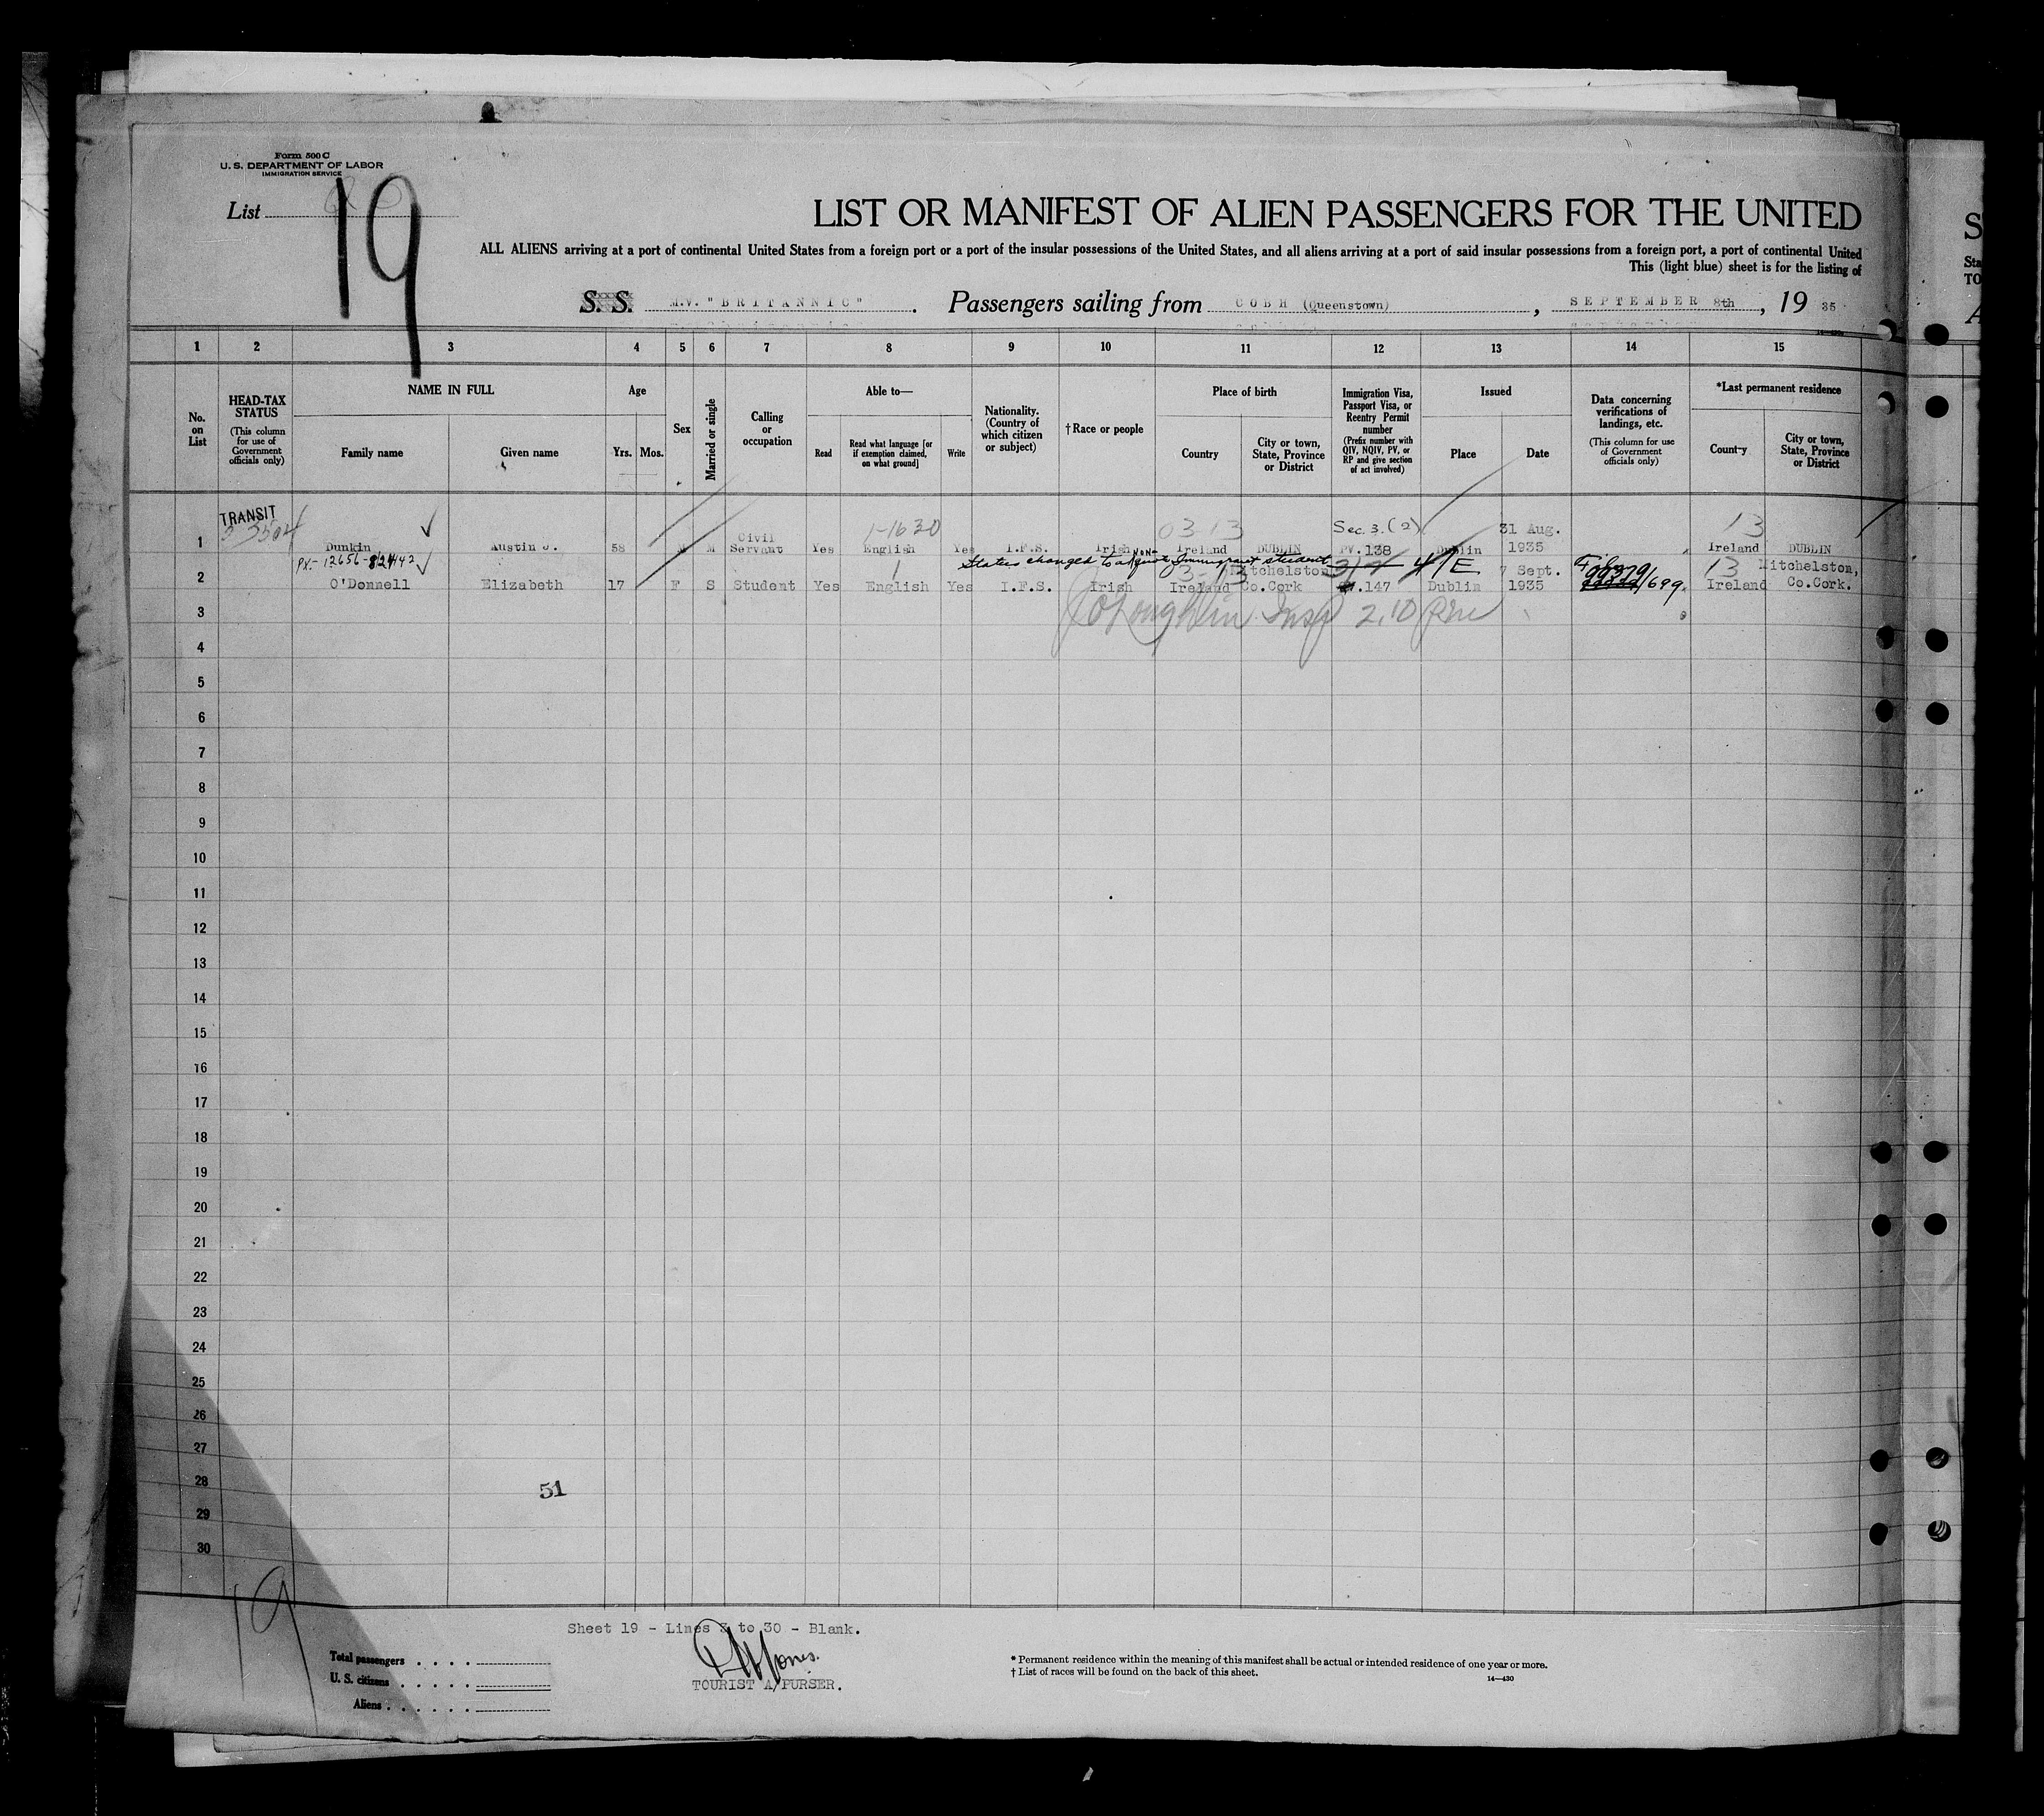 Form 500 C
U. S. DEPARTMENT OF LABOR
IMMIGRATION SERVICE
List 19
LIST OR MANIFEST OF ALIEN PASSENGERS FOR THE UNITED
ALL ALIENS arriving at a port of continental United States from a foreign port or a port of the insular possessions of the United States, and all aliens arriving at a port of said insular possessions from a foreign port, a port of continental United
This (light blue) sheet is for the listing of
S. S. M.V. "BRITANNIC". Passengers sailing from COBH (Queenstown), SEPTEMBER 8th, 19 35
1 2 3 4 5 6 7 8 9 10 11 12 13 14 15
No. on List
HEAD-TAX STATUS (This column for use of Government officials only)
NAME IN FULL
Family name
Given name
Age
Yrs. Mos.
Sex
Married or single
Calling or occupation
Able to—
Read
Read what language [or if exemption claimed, on what ground]
Write
Nationality. (Country of which citizen or subject)
†Race or people
Place of birth
Country
City or town, State, Province or District
Immigration Visa, Passport Visa, or Reentry Permit number (Prefix number with QIV, NQIV, PV, or RP and give section of act involved)
Issued
Place
Date
Data concerning verifications of landings, etc. (This column for use of Government officials only)
*Last permanent residence
Country
City or town, State, Province or District
TRANSIT 1-1630 0313 Sec. 3. (2) 31 Aug. 13
1 Dunkin Austin J. 58 M M Civil Servant Yes English Yes I.F.S. Irish Ireland DUBLIN PV.138 Dublin 1935 Ireland DUBLIN
Status changed to a Non-quota Immigrant student 4/E
2 O'Donnell Elizabeth 17 F S Student Yes English Yes I.F.S. Irish Ireland Mitchelston Co.Cork .147 Dublin 7 Sept. 1935 File 99379/699 13 Ireland Mitchelston, Co.Cork.
3 Insp 2.10 pm
4
5
6
7
8
9
10
11
12
13
14
15
16
17
18
19
20
21
22
23
24
25
26
27
28
29
30
51
19
Sheet 19 - Lines 3 to 30 - Blank.
Total passengers
U. S. citizens
Aliens
TOURIST A/PURSER.
* Permanent residence within the meaning of this manifest shall be actual or intended residence of one year or more.
† List of races will be found on the back of this sheet.
14—430